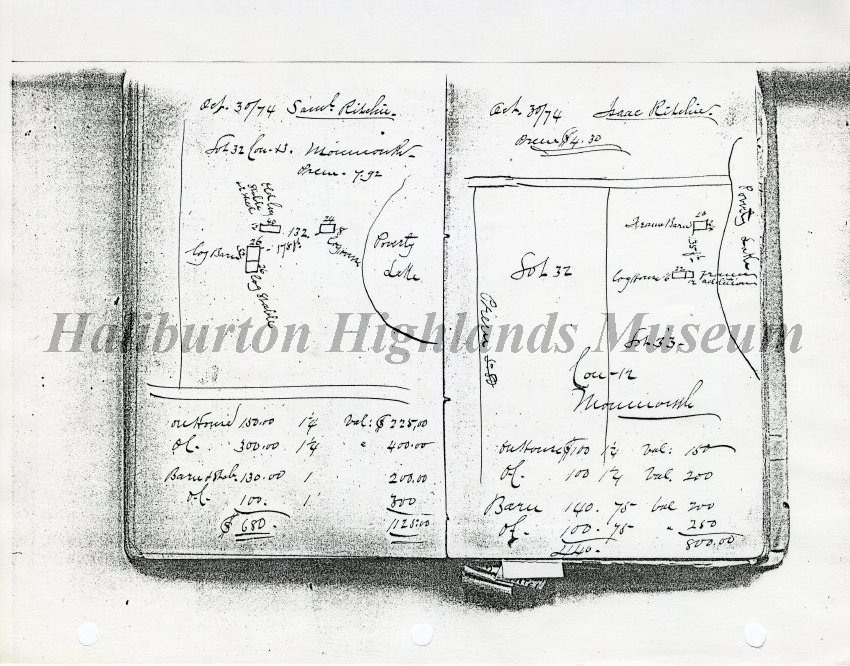 Oct. 30/74 Saml. Ritchie.
Lot 32 Con. 13. Monmouth
Prem. 7.92
Old Log
Stable
13 40
132
24
18
Log House
178 ft
Log Barn
26
26
Log Stable
Poverty
Lake
On House 150.00 1¼ Val: $225.00
Of. 300.00 1¼ " 400.00
Barn & Stab. 130.00 1 200.00
Of. 100. 1 300
$680. 1125.00
Oct. 30/74 Isaac Ritchie.
Prem $4.30
Poverty Lake
Frame Barn
35 ft
Log House 22 Frame
addition
Lot 32
Lot 33-
Prem 5.80
Con-12
Monmouth
On House $100 1¼ Val: 150
Of. 100 1¼ Val. 200
Barn 140. 75 Val 200
Of. 100. 75 " 250
440. 800.00
Haliburton Highlands Museum